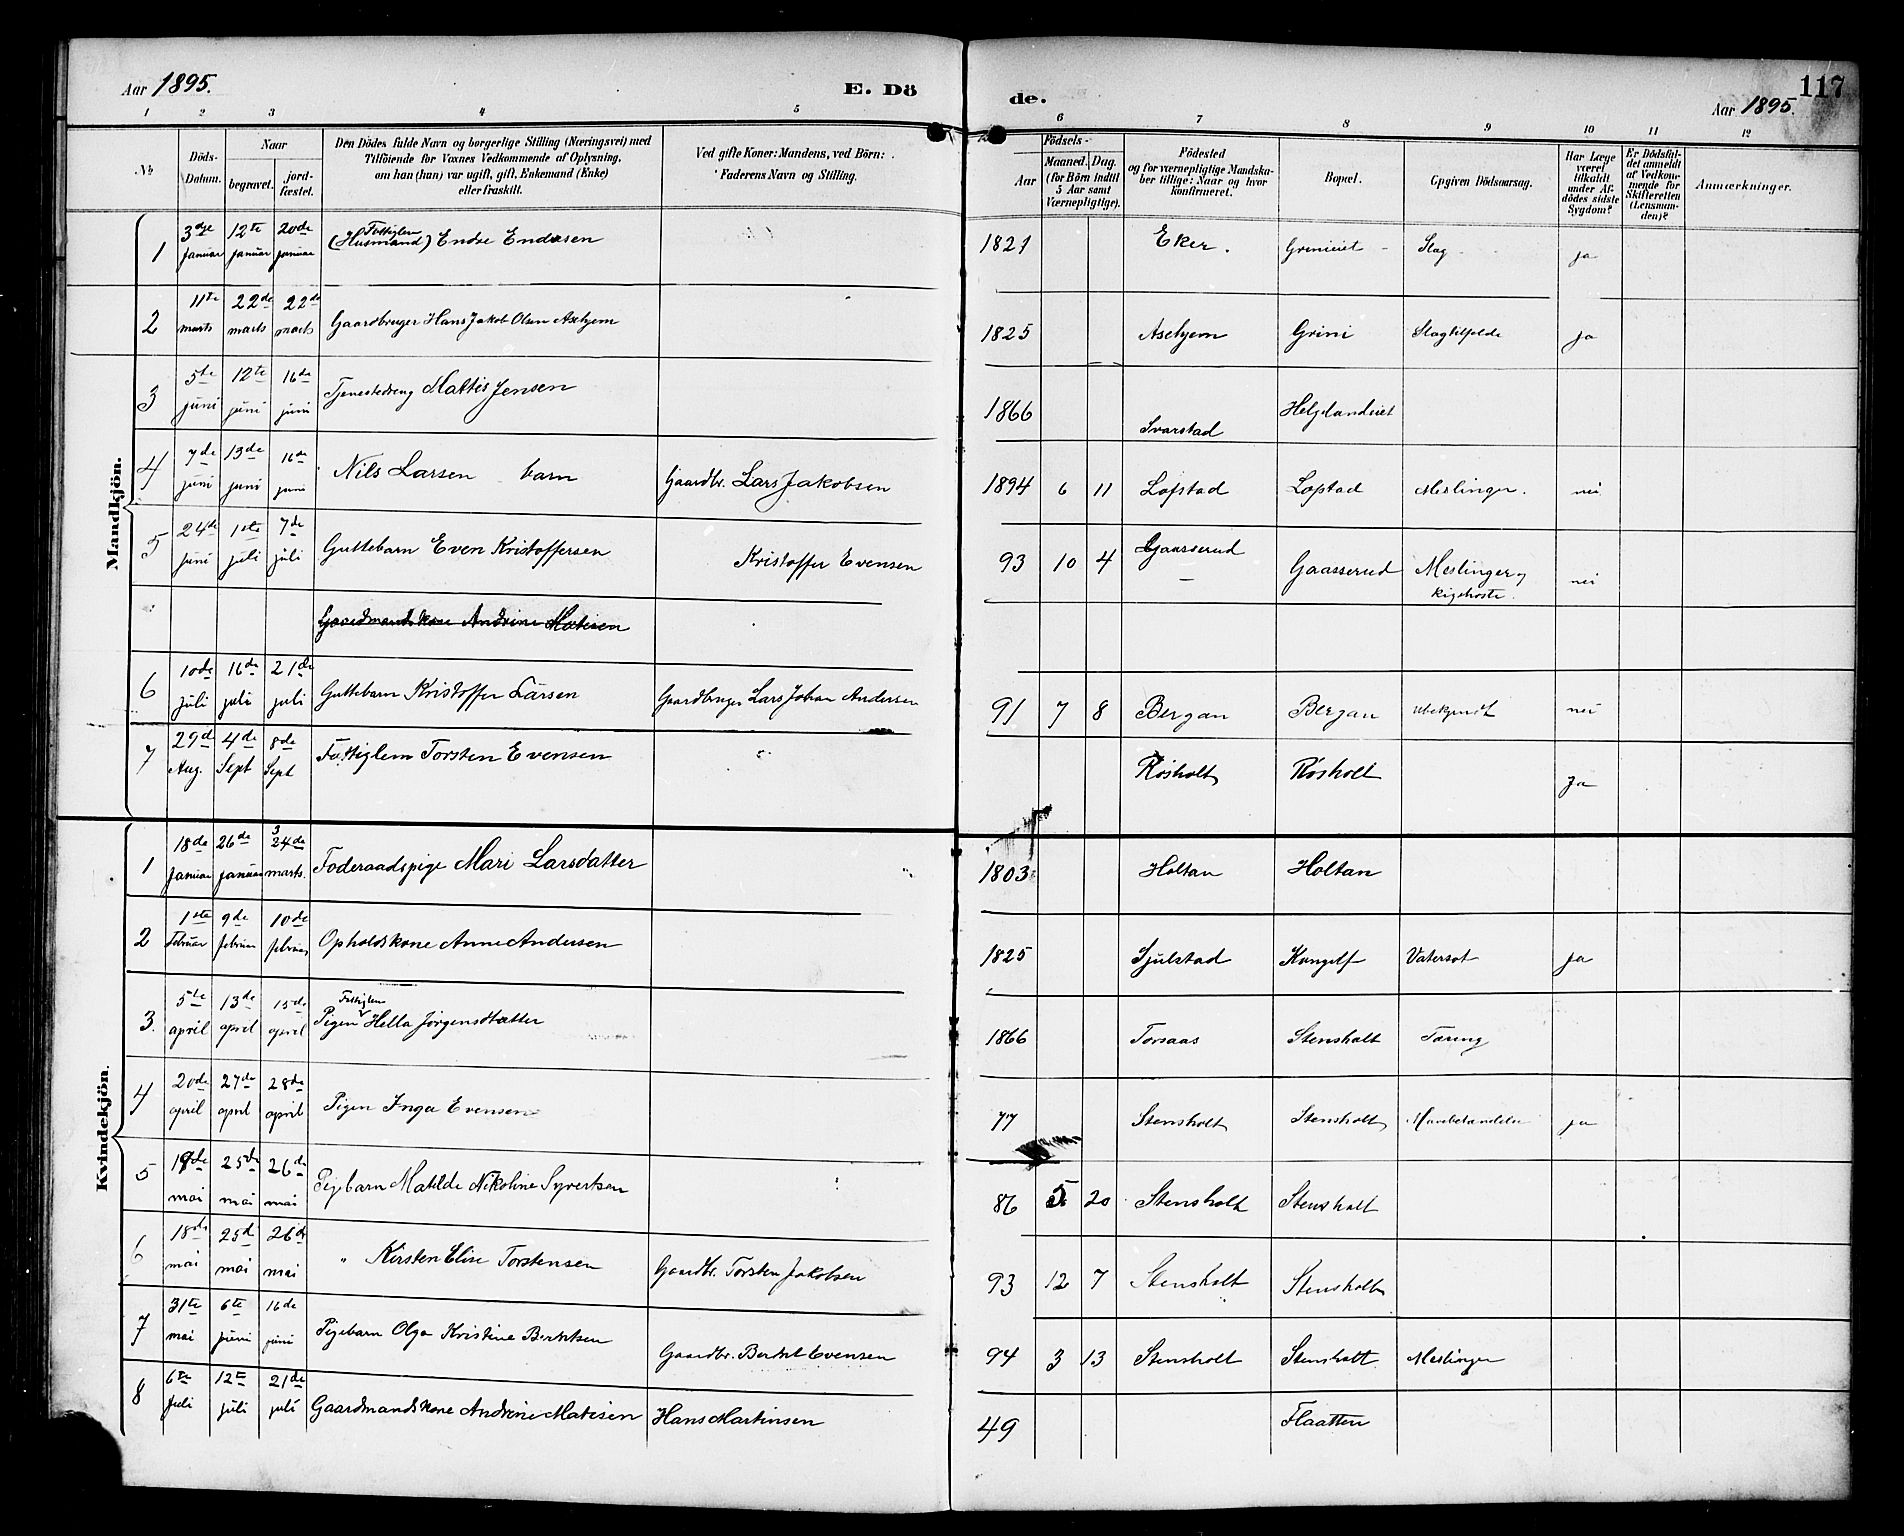 Aar 1895.
E. Dö
de.
Aar 1895.
117
1 2 3 4 5 6 7 8 9 10 11 12
No
Döds-Datum.
Naar
begravet.
jord-fæstet.
Den Dödes fulde Navn og borgerlige Stilling (Næringsvei) med
Tilföiende for Voxnes Vedkommende af Oplysning,
om han (hun) var ugift, gift, Enkemand (Enke)
eller fraskilt.
Ved gifte Koner: Mandens, ved Börn:
Faderens Navn og Stilling.
Födsels-
Aar
Maaned. Dag.
(for Börn indtil
5 Aar samt
Værnepligtige).
Födested
og for værnepligtige Mandska-
ber tillige: Naar og hvor
konfirmeret.
Bopæl.
Opgiven Dödsaarsag.
Har Læge
været
tilkaldt
under Af-
dödes sidste
Sygdom?
Er Dödsfal-
det anmeldt
af Vedkom-
mende for
Skifteretten
(Lensman-
den)?
Anmærkninger.
Mandkjön.
1 3dje januar 12te januar 20de januar Fattiglem (Husmand) Endre Endresen 1821 Eker. Grinieiet Slag ja
2 11te marts 22de marts 22de marts Gaardbruger Hans Jakob Olsen Askjem 1825 Askjem Grini Slagtilfelde ja
3 5te juni 12te juni 16de juni Tjenestedreng Mattis Jensen 1866 Svarstad Helgelandeiet
4 7de juni 13de juni 16de juni Nils Larsen barn Gaardbr. Lars Jakobsen 1894 6 11 Lofstad Lofstad Meslinger. nei
5 24de juni 1ste juli 7de juli Guttebarn Even Kristoffersen Kristoffer Evensen 93 10 4 Gaasserud Gaasserud Meslinger og kighoste. nei
Gaardmandskone Andrine Matisen
6 10de juli 16de juli 21de juli Guttebarn Kristoffer Larsen Gaardbruger Lars Johan Andersen 91 7 8 Bergan Bergan Ubekjendt nei
7 29de Aug. 4de Sept 8de Sept Fattiglem Torsten Evensen Røsholt Røsholt Ja
Kvindekjön.
1 18de januar 26de januar 24de marts. Foderaadspige Mari Larsdatter 1803 Holtan Holtan
2 1ste Februar 9de februar 10de februar Opholdskone Anne Andersen 1825 Sjulstad Kongelf Vatersot ja
3. 5te april 13de april 15de april Pigen Fattiglem Hella Jørgensdatter 1866 Torsaas Stensholt Tæring
4 20de april 27de april 28de april Pigen Inga Evensen 77 Stensholt Stensholt ja
5 19de mai 25de mai 26de mai Pigebarn Matilde Nikoline Syvertsen 86 5 20 Stensholt Stensholt
6 18de mai 25de mai 26de mai " Kirsten Elise Torstensen Gaardbr. Torsten Jakobsen 93 12 7 Stensholt Stensholt
7 31te mai 6te juni 16de juni Pigebarn Olga Kristine Berntsen Gaardbr. Berntet Evensen 94 3 13 Stensholt Stensholt Meslinger
8 6te Juli 12te juli 21de juli Gaardmandskone Andrine Matisen Hans Martinsen 49 Flaatten